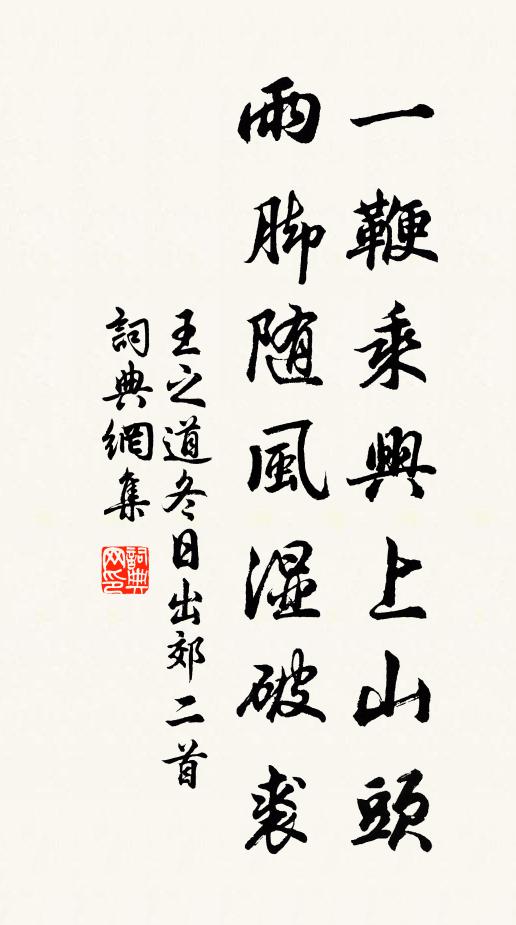 一鞭乘興上山頭
雨脚随風湿破裘
王之道冬日出郊二首
詞典網集
詞典网印